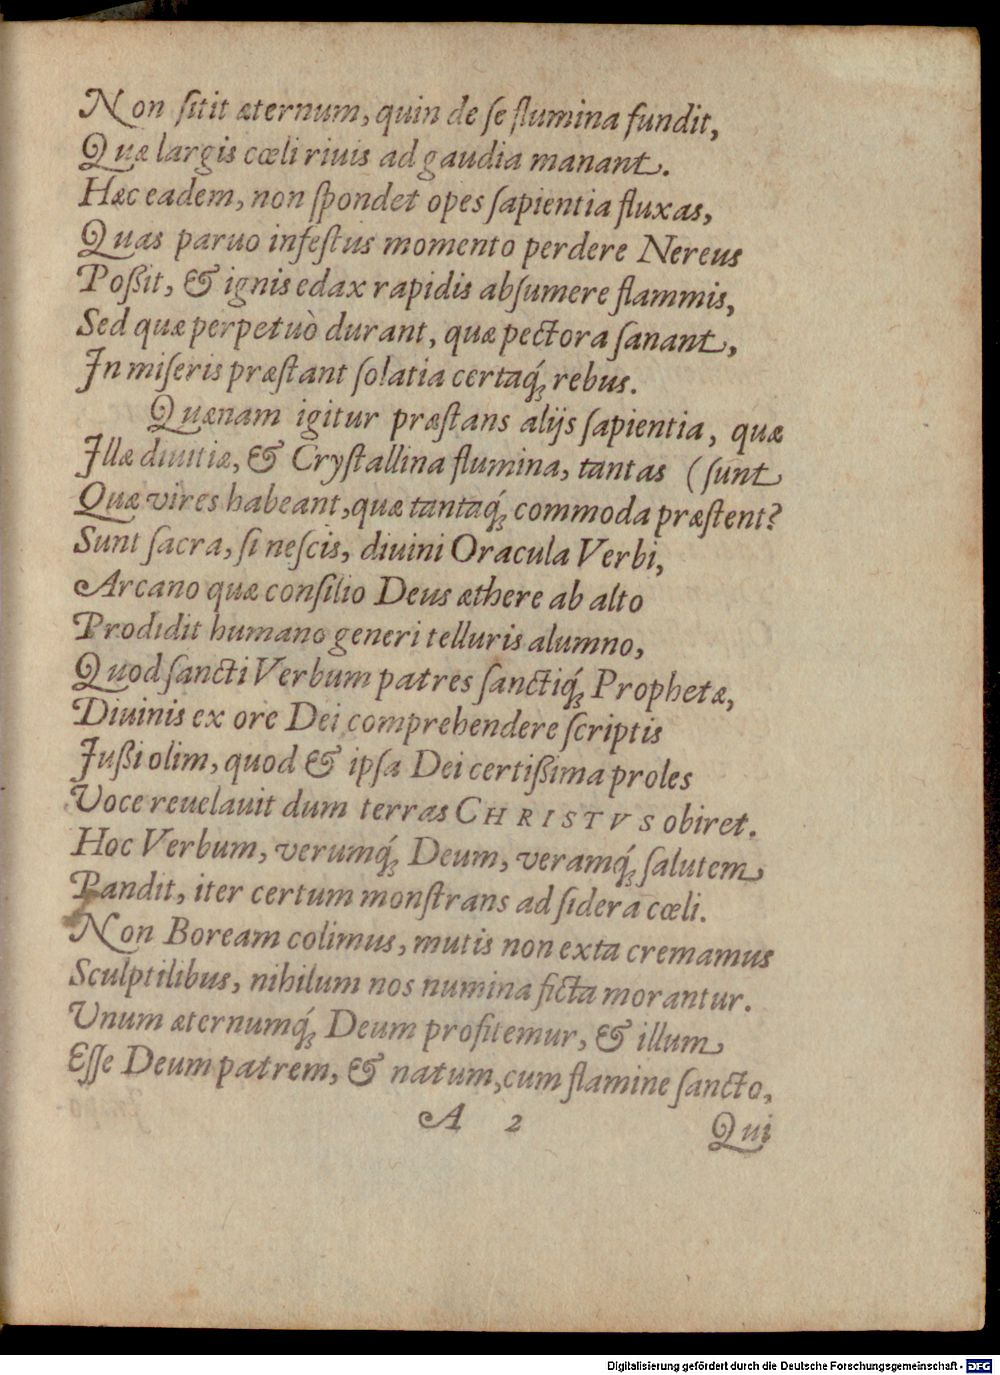 Non ſitit æternum, quin de ſe flumina fundit,
Quæ largis cœli riuis ad gaudia manant.
Hæc eadem, non ſpondet opes ſapientia fluxas,
Quas paruo infeſtus momento perdere Nereus
Poßit, & ignis edax rapidis abſumere flammis,
Sed quæ perpetuò durant, quæ pectora ſanant,
In miſeris præſtant ſolatia certaq́; rebus.
Quænam igitur præſtans alijs ſapientia, quæ
Illæ diuitiæ, & Cryſtallina flumina, tantas (ſunt
Quæ vires habeant, quæ tantaq́; commoda præſtent?
Sunt ſacra, ſi neſcis, diuini Oracula Verbi,
Arcano quæ conſilio Deus æthere ab alto
Prodidit humano generi telluris alumno,
Quod ſancti Verbum patres ſanctiq́; Prophetæ,
Diuinis ex ore Dei comprehendere ſcriptis
Iußi olim, quod & ipſa Dei certißima proles
Voce reuelauit dum terras CHRISTVS obiret.
Hoc Verbum, verumq́; Deum, veramq́; ſalutem
Pandit, iter certum monſtrans ad ſidera cœli.
Non Boream colimus, mutis non exta cremamus
Sculptilibus, nihilum nos numina ficta morantur.
Unum æternumq́; Deum profitemur, & illum
Eſſe Deum patrem, & natum, cum flamine ſancto,
A 2 Qui
Digitalisierung gefördert durch die Deutsche Forschungsgemeinschaft - DFG